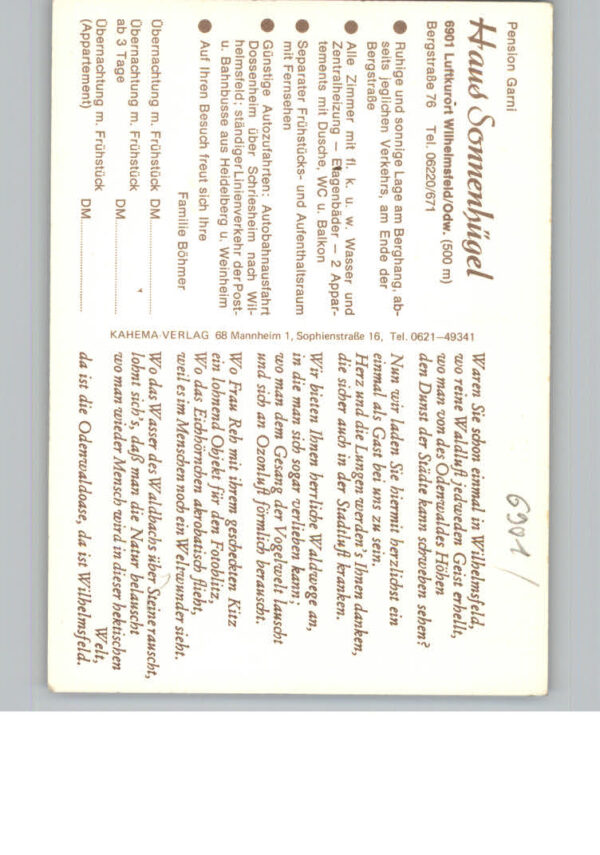 Pension Garni
Haus Sonnenhügel
6901 Luftkurort Wilhelmsfeld/Odw. (500 m)
Bergstraße 76 Tel. 06220/671
● Ruhige und sonnige Lage am Berghang, ab-
seits jeglichen Verkehrs, am Ende der
Bergstraße
● Alle Zimmer mit fl. k. u. w. Wasser und
Zentralheizung – Etagenbäder – 2 Appar-
tements mit Dusche, WC u. Balkon
● Separater Frühstücks- und Aufenthaltsraum
mit Fernsehen
● Günstige Autozufahrten: Autobahnausfahrt
Dossenheim über Schriesheim nach Wil-
helmsfeld; ständiger Linienverkehr der Post-
u. Bahnbusse aus Heidelberg u. Weinheim
● Auf Ihren Besuch freut sich Ihre
Familie Böhmer
Übernachtung m. Frühstück DM
Übernachtung m. Frühstück
ab 3 Tage DM
Übernachtung m. Frühstück
(Appartement) DM
KAHEMA-VERLAG 68 Mannheim 1, Sophienstraße 16, Tel. 0621–49341
6901/
Waren Sie schon einmal in Wilhelmsfeld,
wo reine Waldluft jedweden Geist erhellt,
wo man von des Odenwaldes Höhen
den Dunst der Städte kann schweben sehen?
Nun wir laden Sie hiermit herzlichst ein
einmal als Gast bei uns zu sein.
Herz und die Lungen werden's Ihnen danken,
die sicher auch in der Stadtluft kranken.
Wir bieten Ihnen herrliche Waldwege an,
in die man sich sogar verlieben kann;
wo man dem Gesang der Vogelwelt lauscht
und sich an Ozonluft förmlich berauscht.
Wo Frau Reh mit ihrem gescheckten Kitz
ein lohnend Objekt für den Fotoblitz,
Wo das Eichhörnchen akrobatisch flieht,
weil es im Menschen noch ein Weltwunder sieht.
Wo das Wasser des Waldbachs über Steine rauscht,
lohnt sich's, daß man die Natur belauscht
wo man wieder Mensch wird in dieser hektischen
Welt,
da ist die Odenwaldoase, da ist Wilhelmsfeld.